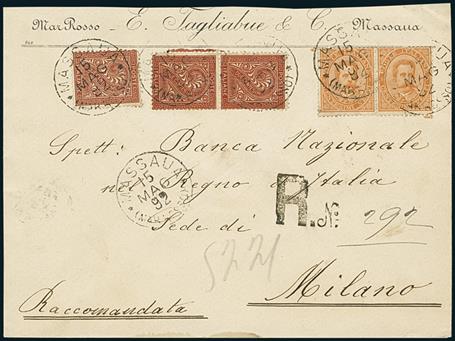 Mar Rosso - E. Tagliabue & C. - Massaua
MASSAUA
15
MAG
92
(MAR ROSSO)
Spett: Banca Nazionale
nel Regno d'Italia
Sede di
Milano
R. N.
292
5221
Raccomandata